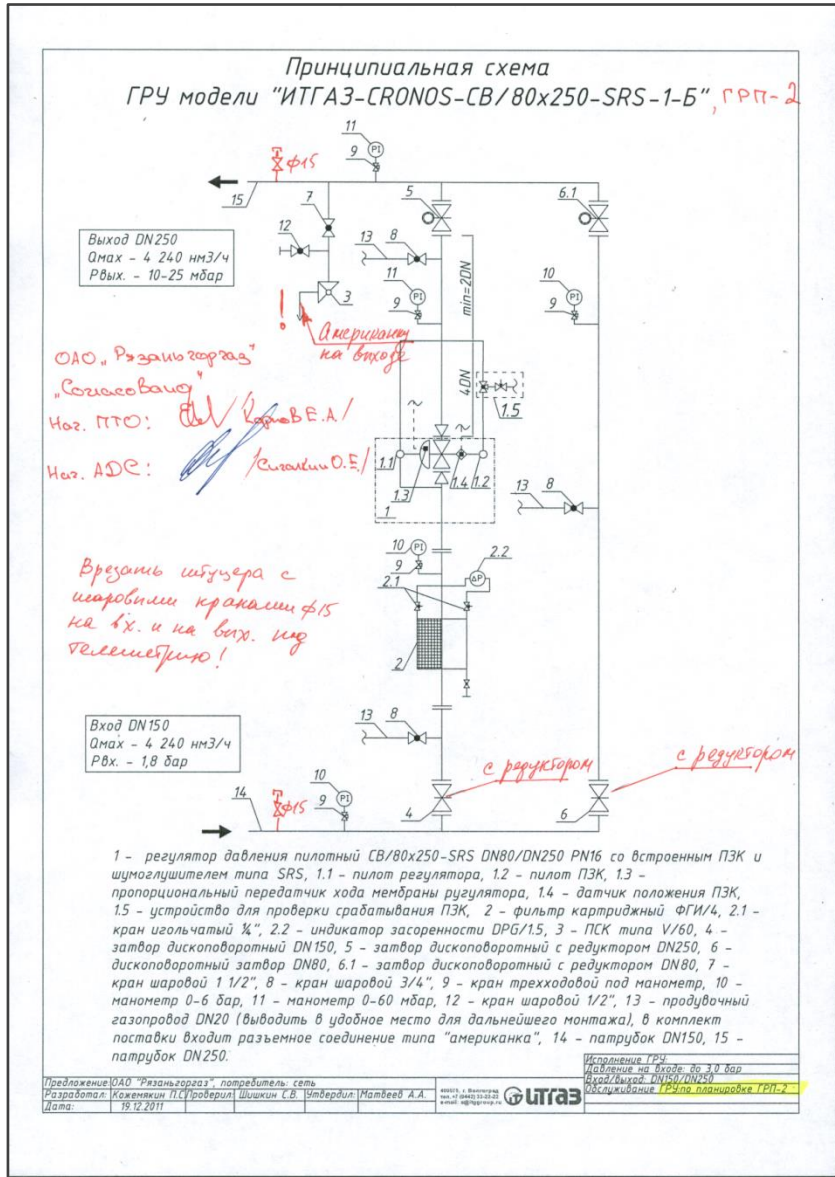 Принципиальная схема
ГРУ модели "ИТГАЗ-CRONOS-СВ/80х250-SRS-1-Б", ГРП-2
11
PI
9
ф15
15
7
5
6.1
12
13
8
Выход DN250
Qмах - 4 240 нм3/ч
Рвых. - 10-25 мбар
11
PI
9
10
PI
9
min=2DN
3
!
Американку
на выходе
4DN
1.5
ОАО "Рязаньгоргаз"
"Согласовано"
Нач. ПТО:
Нач. АДС:
1.1
1.3
1.4
1.2
1
13
8
10
PI
9
2.2
ΔP
2.1
Врезать штуцера с
шаровыми кранами ф15
на вх. и на вых. под
телеметрию!
2
Вход DN150
Qмах - 4 240 нм3/ч
Рвх. - 1,8 бар
13
8
с редуктором
с редуктором
14
ф15
10
PI
9
4
6
1 - регулятор давления пилотный СВ/80х250-SRS DN80/DN250 PN16 со встроенным ПЗК и
шумоглушителем типа SRS, 1.1 - пилот регулятора, 1.2 - пилот ПЗК, 1.3 -
пропорциональный передатчик хода мембраны ругулятора, 1.4 - датчик положения ПЗК,
1.5 - устройство для проверки срабатывания ПЗК, 2 - фильтр картриджный ФГИ/4, 2.1 -
кран игольчатый ¼", 2.2 - индикатор засоренности DPG/1.5, 3 - ПСК типа V/60, 4 -
затвор дископоворотный DN150, 5 - затвор дископоворотный с редуктором DN250, 6 -
дископоворотный затвор DN80, 6.1 - затвор дископоворотный с редуктором DN80, 7 -
кран шаровой 1 1/2", 8 - кран шаровой 3/4", 9 - кран трехходовой под манометр, 10 -
манометр 0-6 бар, 11 - манометр 0-60 мбар, 12 - кран шаровой 1/2", 13 - продувочный
газопровод DN20 (выводить в удобное место для дальнейшего монтажа), в комплект
поставки входит разъемное соединение типа "американка", 14 - патрубок DN150, 15 -
патрубок DN250.
Исполнение ГРУ:
Давление на входе: до 3,0 бар
Вход/выход: DN150/DN250
Обслуживание ГРУ:по планировке ГРП-2
Предложение: ОАО "Рязаньгоргаз", потребитель: сеть
Разработал: Кожемякин П.С Проверил: Шишкин С.В. Утвердил: Матвеев А.А.
Дата: 19.12.2011
итгаз